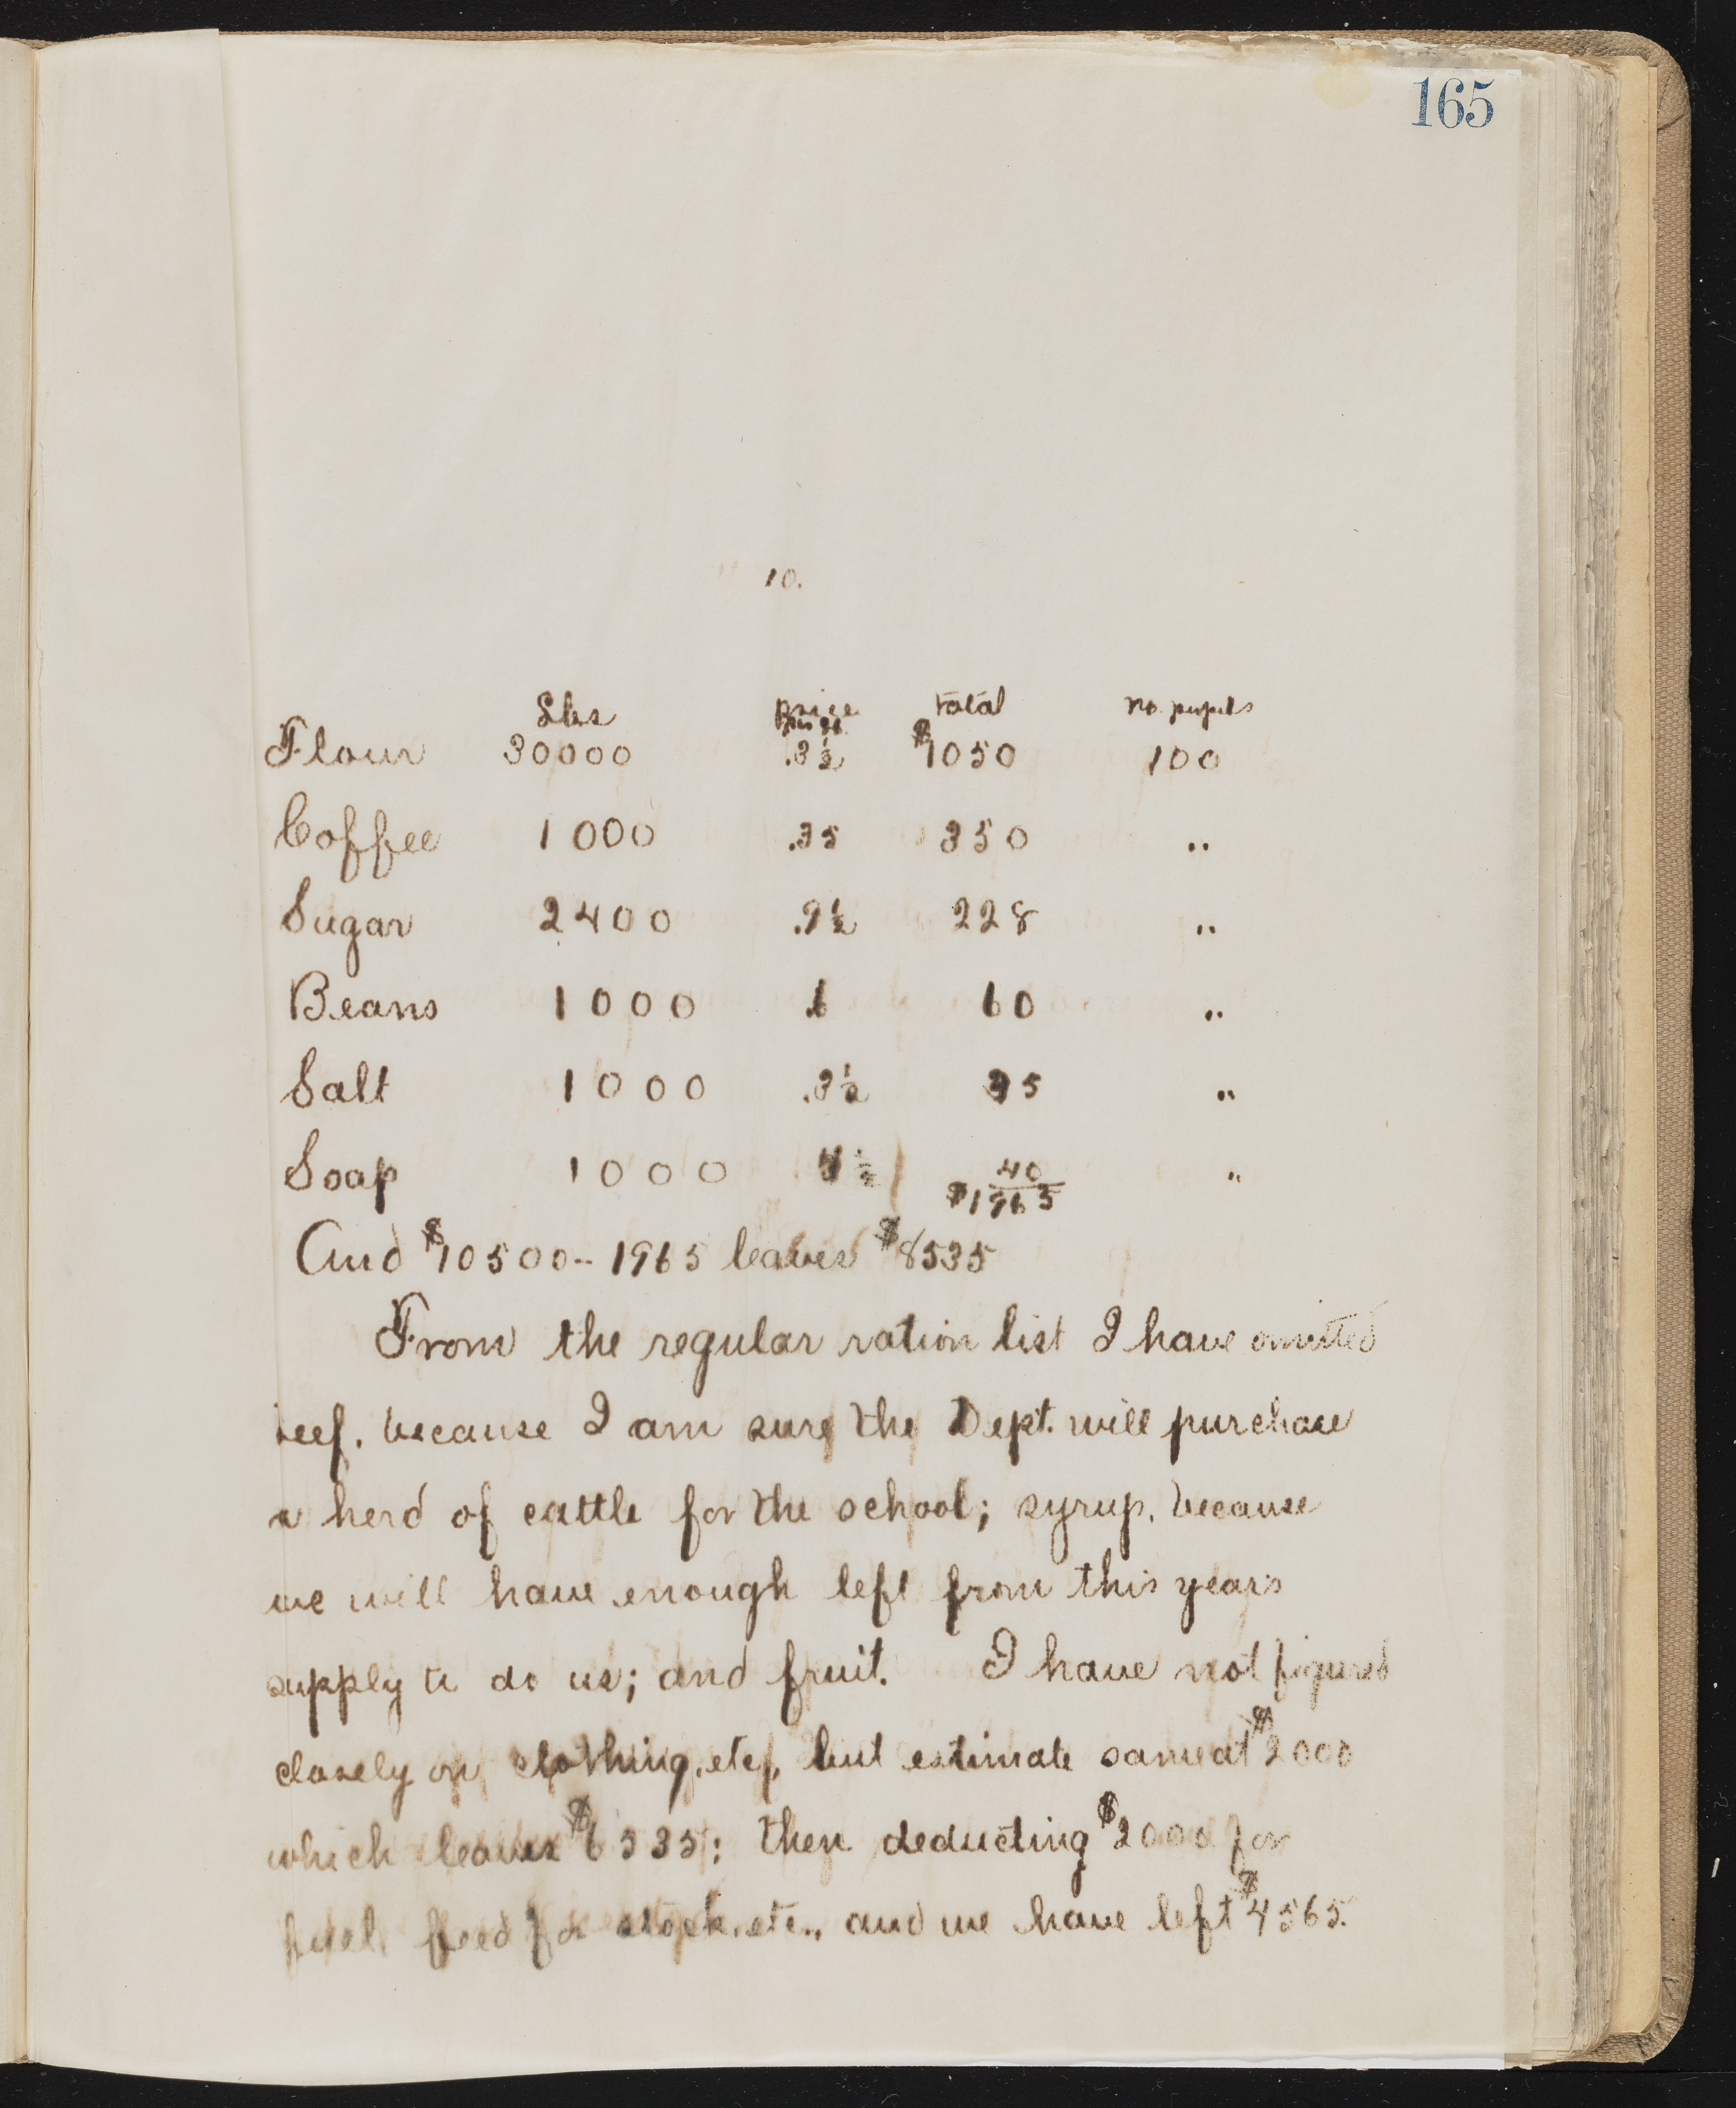 165
10.
Lbs price total no. pupils
per lb.
Flour 30000 .3½ $1050 100
Coffee 1000 .35 350 "
Sugar 2400 .9½ 228 "
Beans 1000 .6 60 "
Salt 1000 .3½ 35 "
Soap 1000 4½ 40 "
$1965
And $10500-- 1965 leaves $8535
From the regular ration list I have omitted
beef, because I am sure the Dept. will purchase
a herd of cattle for the school; syrup, because
we will have enough left from this years
supply to do us; and fruit. I have not figured
closely on clothing, etc, but estimate same at $2000
which leaves $6535; then deducting $2000 for
fuel, feed for stock, etc., and we have left $4565.